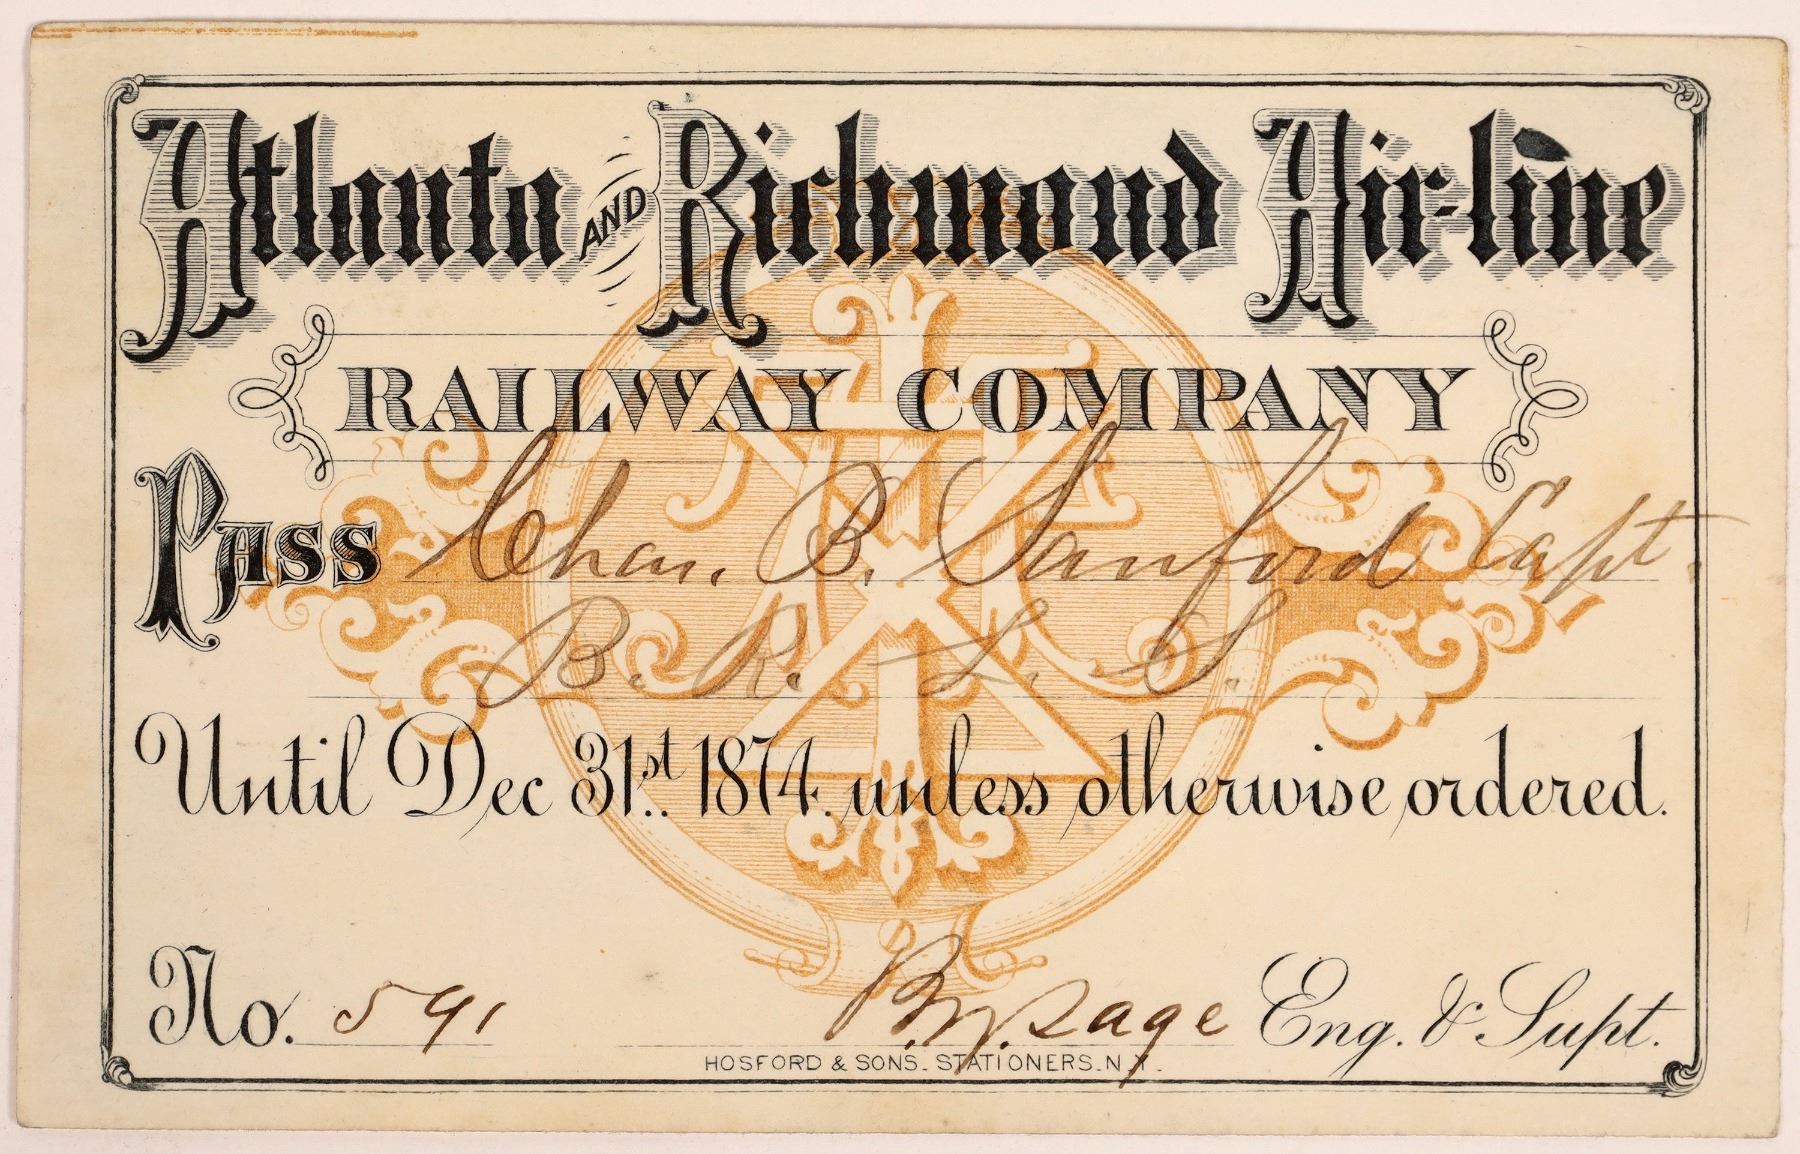 Atlanta AND Richmond Air-line
RAILWAY COMPANY
PASS Chas. B. Sanford Capt.
B. R. L. S.
Until Dec 31st. 1874. unless otherwise ordered.
No. 591 B.Y. Sage Eng. & Supt.
HOSFORD & SONS. STATIONERS. N.Y.